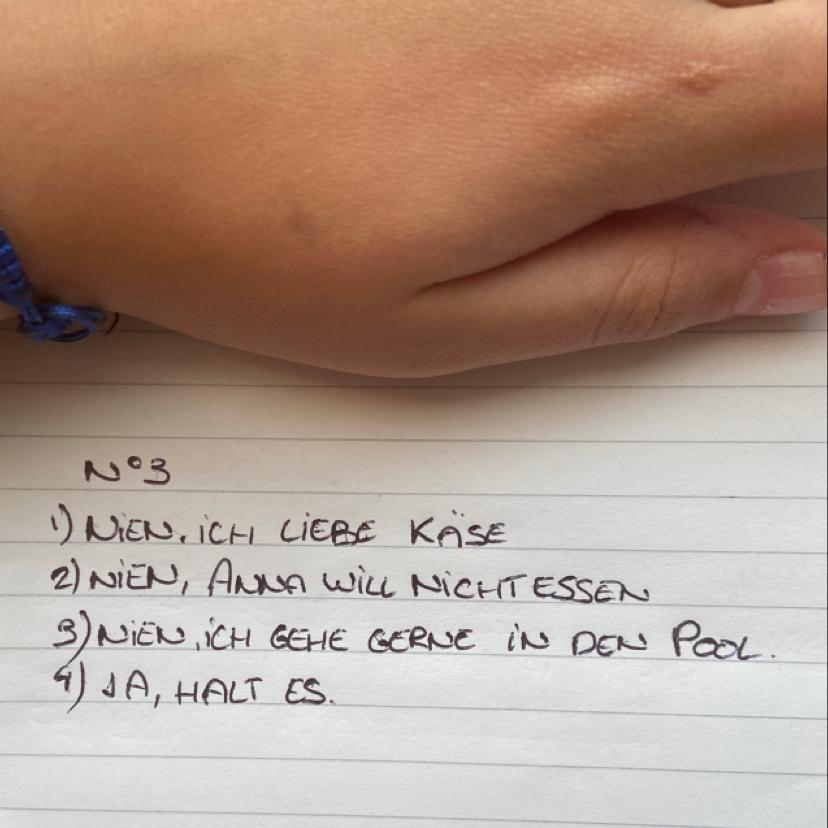 N°3
1) NIEN, ICH LIEBE KÄSE
2) NIEN, ANNA WILL NICHT ESSEN
3) NIEN, ICH GEHE GERNE IN DEN POOL.
4) JA, HALT ES.